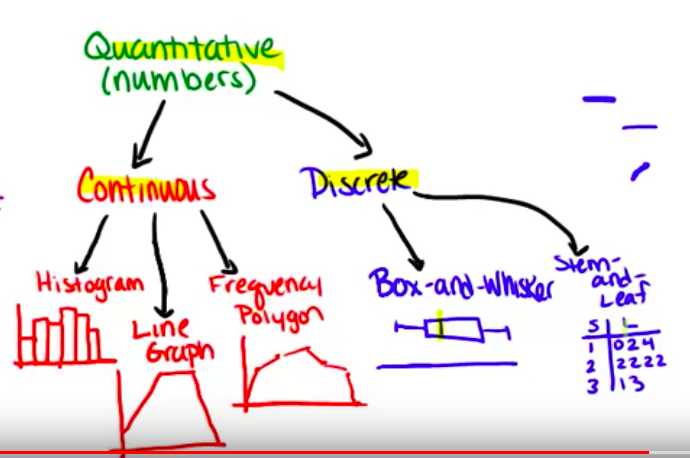 Quantitative
(numbers)
Continuous
Discrete
Histogram
Line
Graph
Frequency
Polygon
Box-and-Whisker
Stem-
and-
Leaf
S L
1 024
2 2222
3 13